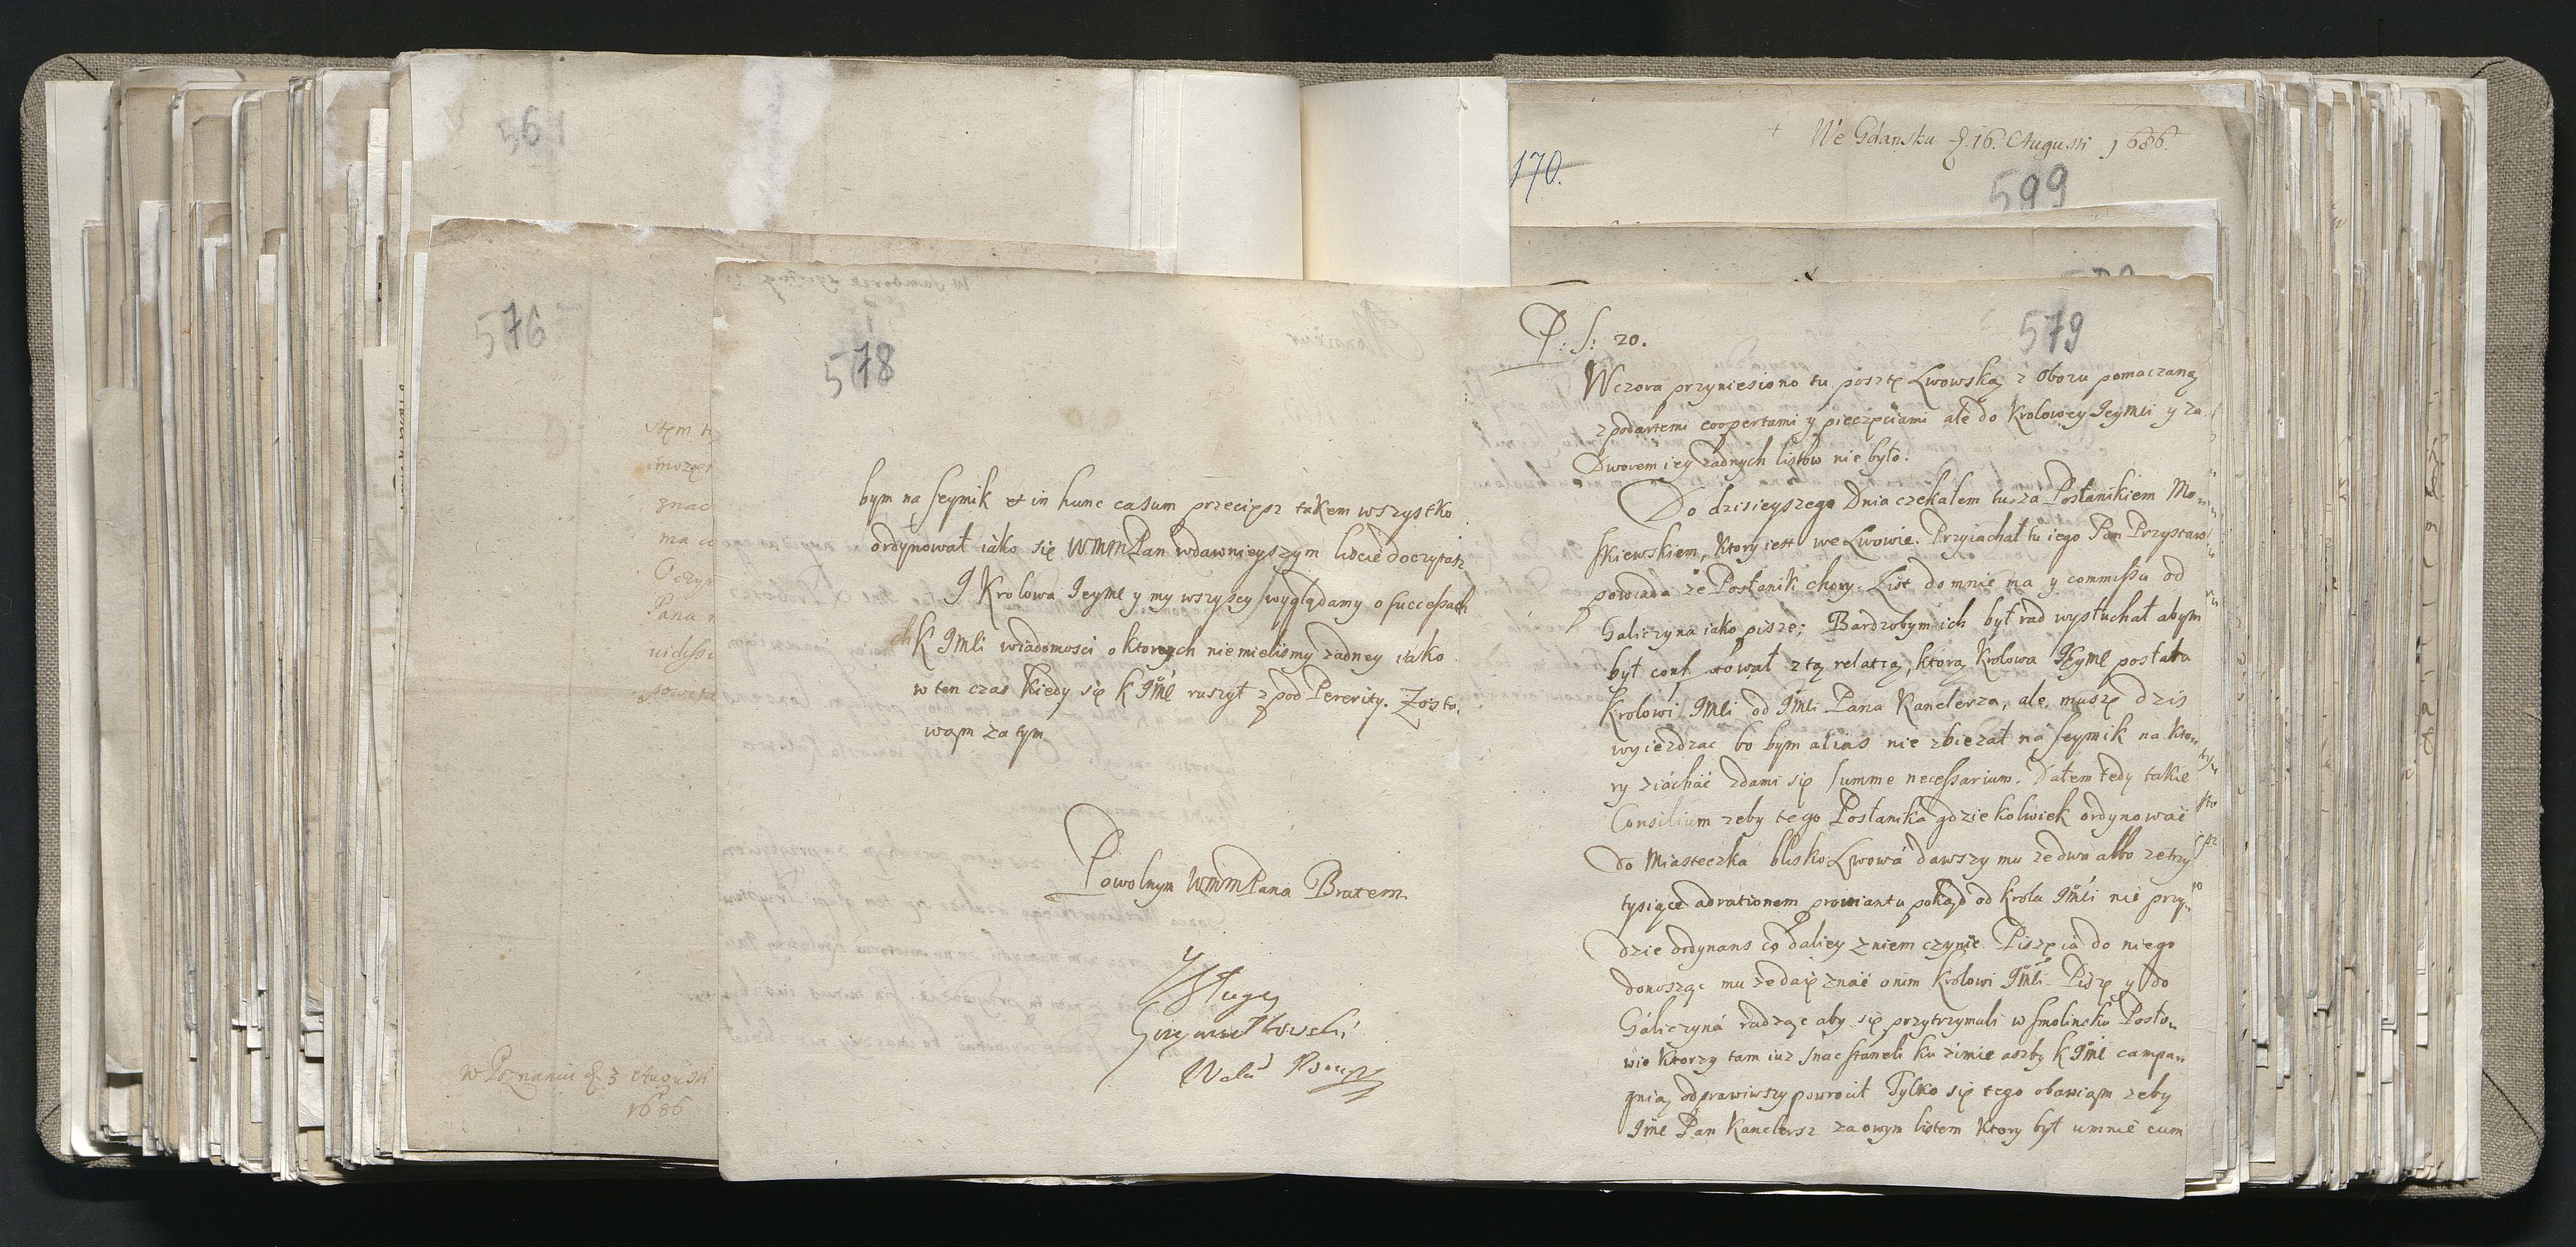 564
576
W Poznaniu d. 3 Augusti
1686
578
bym na seymik et in hunc casum przecięsz takem wszystko
ordynował iáko się WMMPan wdawnieyszym liście doczytasz
J Krolowa Jeyme y my wszyscy wyglądamy o successach
K JMśli wiadomosci o ktorych niemielismy żadney iáko
w ten czas kiedy się K JMe ruszył z pod Pererity. Zosta,
wąm za tym
Powolnym WMMPana Bratem
y Sługą
170.
+ We Gdansku d. 16. Augusti 1686.
599
579
P: S: 20.
Wczora przyniesiono tu posztę Lwowską z obozu pomaczaną
z podartemi coopertami y pieczęciami ale do Krolowey Jeymśi y za
Dworem iey żadnych listow nie było.
Do dzisieyszego Dnia czekałem tu za Posłanikiem Mo,
skiewskiem, ktory iest we Lwowie. Przyiachał tu iego Pan Przystaw
powiada że Posłanik chory. List do mnie ma y commissa od
Galiczyna iako pisze; Bardzobym ich był rad wysłuchał abym
był tą relatią, ktorą Krolowa JEyme posłała
Krolowi JMśi od JMśi Pana Kanclerza, ale muszę dzis
wyieżdzac bo bym alias nie zbieżał ná seymik na kto,
ry ziácháć zdami się summe necessarium. Dałem tedy takie
Consilium zeby tego Posłaniká gdziekolwiek ordynowáć
do Miasteczká blisko Lwowá dawszy mu ze dwá albo ze trzy
tysiące ad rationem prowiantu pokąd od Krola JMśi nie przy,
dzie ordynans co daliey z niem czynić. Piszę ia do niego
donosząc mu ze daię znáć o nim Krolowi JMśi. Piszę y do
Gáliczyná radząc aby się przytrzymali w Smolinsku Posło,
wie ktorzy tam iuz snac stanęli ku zimie aszby K JMe campa,
gnią odprawiwszy powrocił Tylko się tego obawiąm zeby
JMe Pan Kanclersz za owym listem ktory był u mnie cum